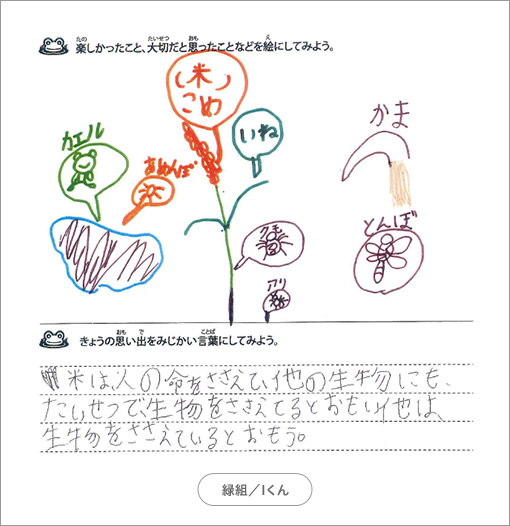 楽しかったこと、大切だと思ったことなどを絵にしてみよう。
(米)
こめ
いね
カエル
あめんぼ
かま
とんぼ
くも
アリ
きょうの思い出をみじかい言葉にしてみよう。
米は、人の命をささえて、他の生物にも、
たいせつで、生物をささえてるとおもい他は、
生物をささえているとおもう。
緑組／Iくん